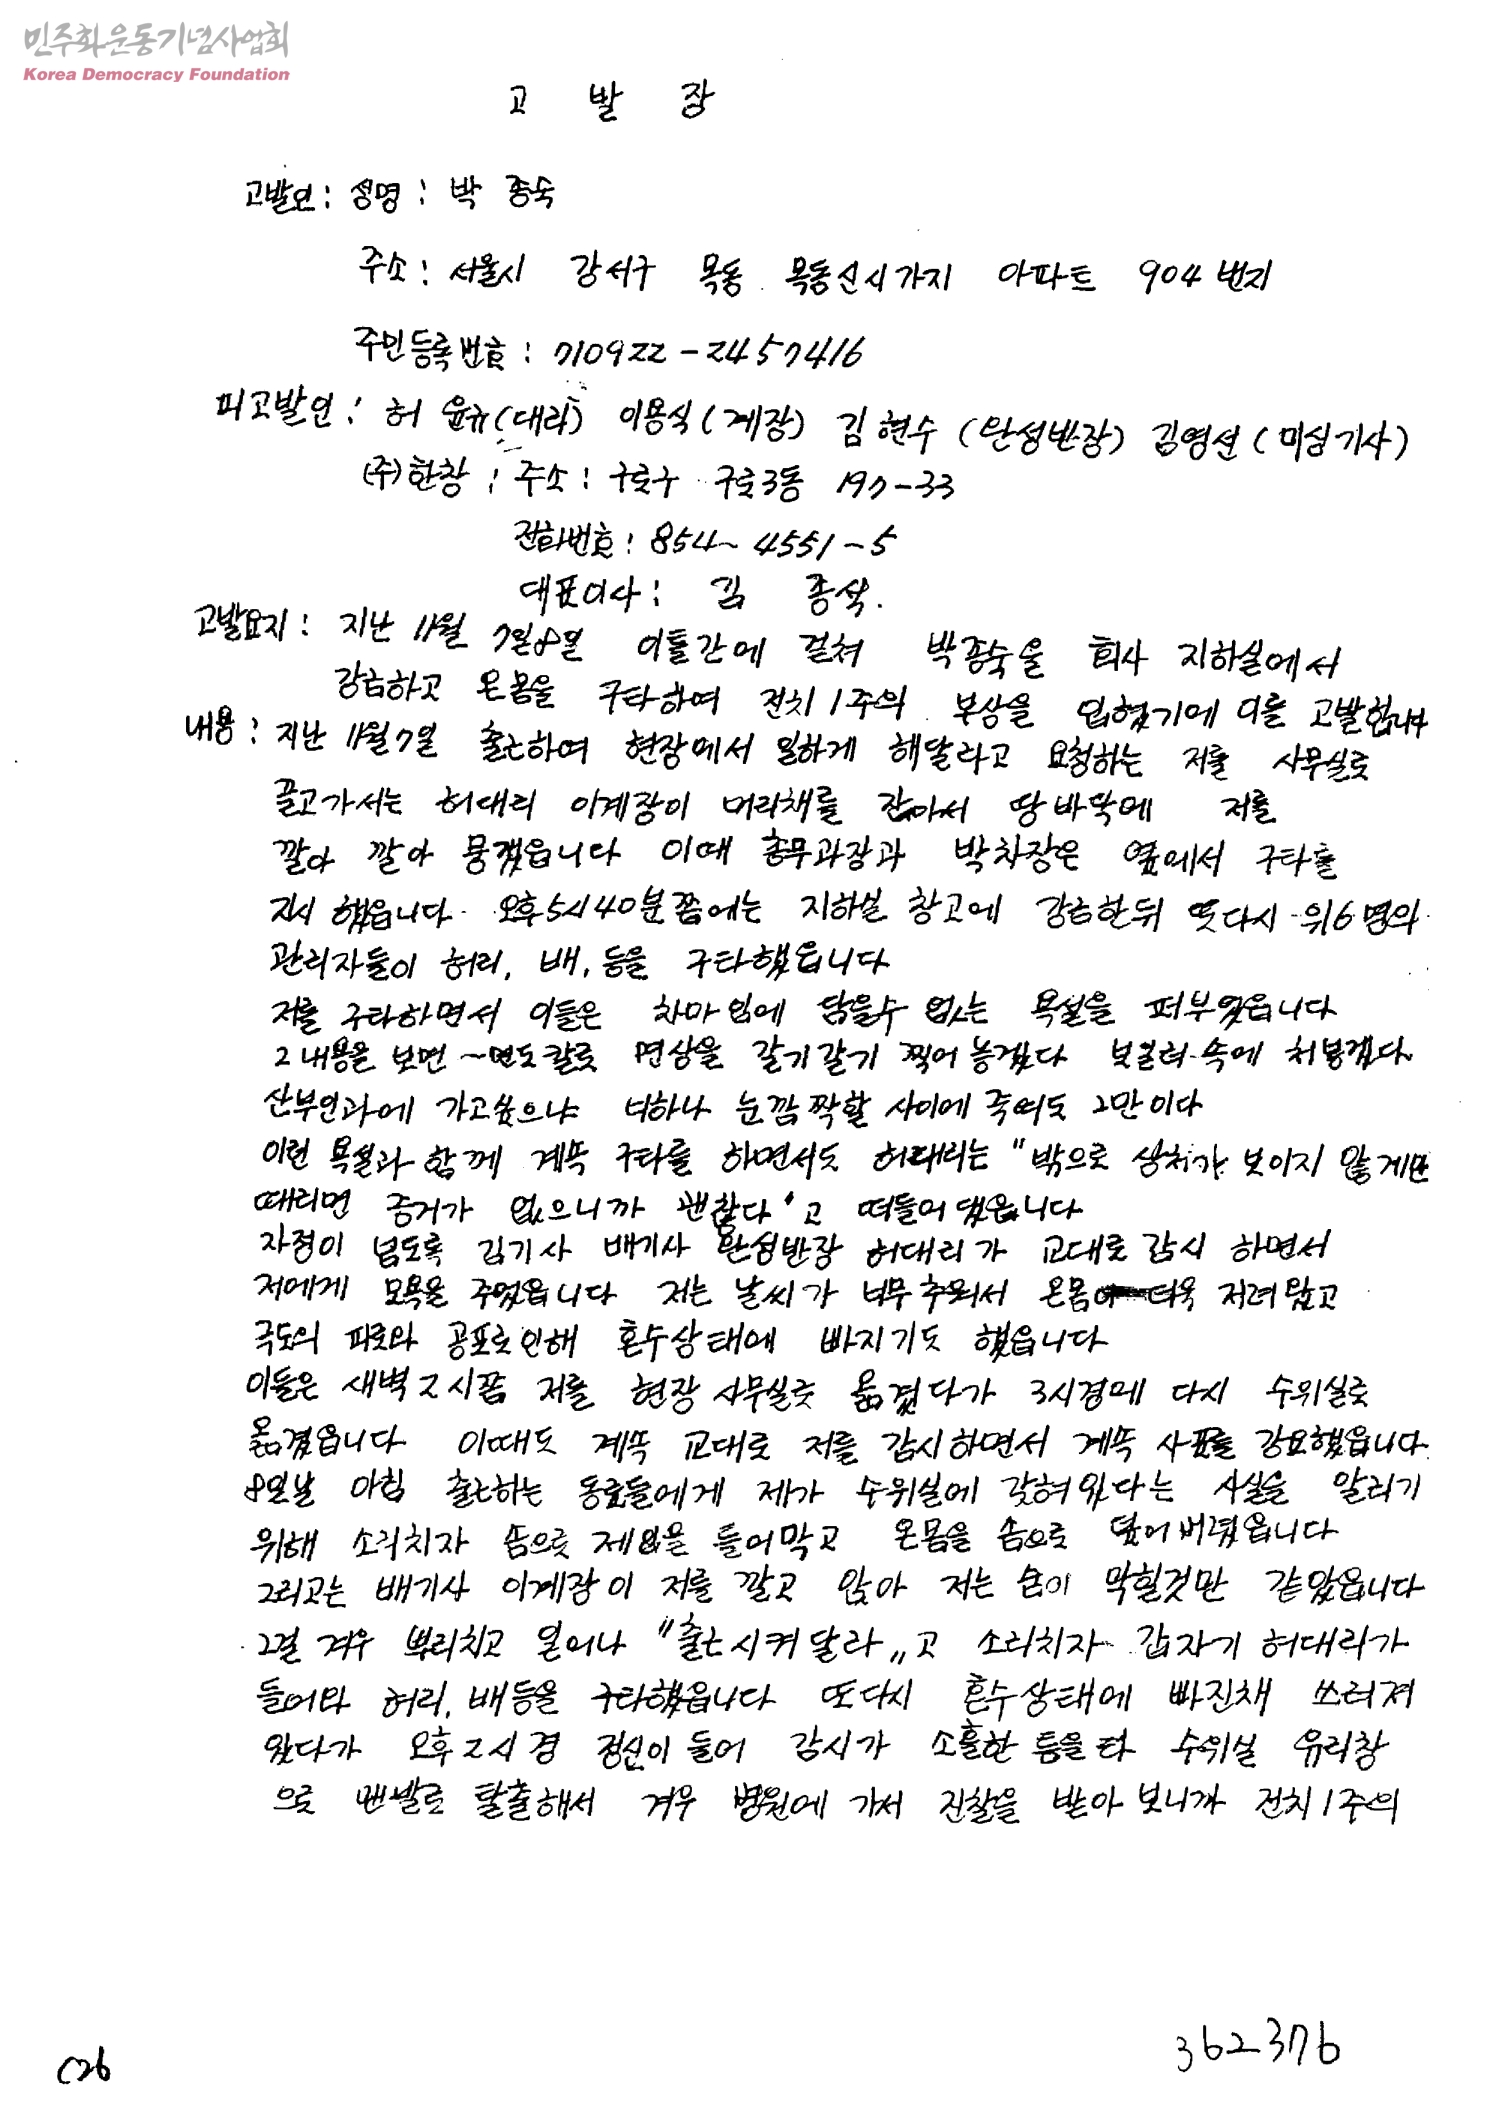 민주화운동기념사업회
Korea Democracy Foundation
고 발 장
고발인 : 성명 : 박 종숙
주소 : 서울시 강서구 목동 목동신시가지 아파트 904번지
주민등록번호 : 710922-2457416
피고발인 : 허 윤규(대리) 이용식(계장) 김현수(완성반장) 김영선(미싱기사)
(주)한창 : 주소 : 구로구 구로3동 197-33
전화번호 : 854~4551-5
대표이사 : 김 종석.
고발요지 : 지난 11월 7일8일 이틀간에 걸쳐 박종숙을 회사 지하실에서
강금하고 온몸을 구타하여 전치1주의 부상을 입혔기에 이를 고발합니다
내용 : 지난 11월7일 출근하여 현장에서 일하게 해달라고 요청하는 저를 사무실로
끌고가서는 허대리 이계장이 머리채를 잡아서 땅바닥에 저를
깔아 깔아 뭉갰읍니다 이때 총무과장과 박차장은 옆에서 구타를
지시 했읍니다. 오후5시40분쯤에는 지하실 창고에 강금한뒤 또다시 위6명의
관리자들이 허리, 배, 등을 구타했읍니다
저를 구타하면서 이들은 차마 입에 담을수 없는 욕설을 퍼부었읍니다
그 내용을 보면 ~면도칼로 면상을 갈기갈기 찢어놓겠다 보일러속에 처넣겠다
산부인과에 가고싶으냐 너하나 눈깜짝할 사이에 죽여도 그만이다
이런 욕설과 함께 계속 구타를 하면서도 허대리는 "밖으로 상처가 보이지 않게만
때리면 증거가 없으니까 괜찮다"고 떠들어댔읍니다
자정이 넘도록 김기사 배기사 완성반장 허대리가 교대로 감시 하면서
저에게 모욕을 주었읍니다 저는 날씨가 너무 추워서 온몸이 더욱 저려왔고
극도의 피로와 공포로인해 혼수상태에 빠지기도 했읍니다
이들은 새벽2시쯤 저를 현장 사무실로 옮겼다가 3시경에 다시 수위실로
옮겼읍니다 이때도 계속 교대로 저를 감시하면서 계속 사표를 강요했읍니다
8일날 아침 출근하는 동료들에게 제가 수위실에 갖혀있다는 사실을 알리기
위해 소리치자 솜으로 제입을 틀어막고 온몸을 솜으로 덮어버렸읍니다
그리고는 배기사 이계장이 저를 깔고 앉아 저는 숨이 막힐것만 같았읍니다
그걸 겨우 뿌리치고 일어나 "출근시켜달라"고 소리치자 갑자기 허대리가
들어와 허리, 배등을 구타했읍니다 또다시 혼수상태에 빠진채 쓰러져
있다가 오후2시경 정신이 들어 감시가 소홀한 틈을타 수위실 유리창
으로 맨발로 탈출해서 겨우 병원에 가서 진찰을 받아 보니까 전치1주의
C26
362376